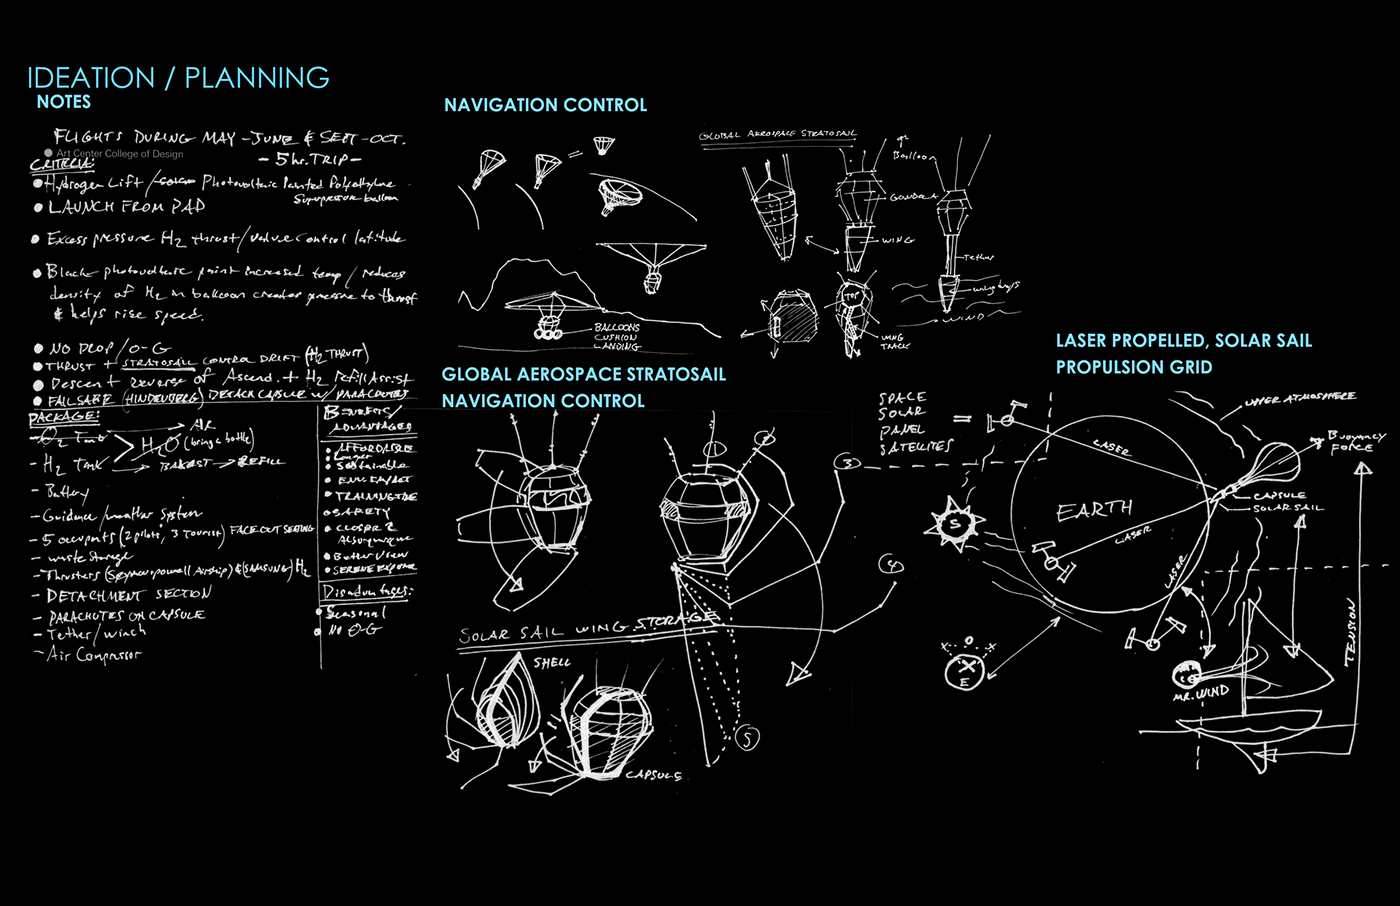 IDEATION / PLANNING
NOTES
FLIGHTS DURING MAY-JUNE & SEPT-OCT.
Art Center College of Design
- 5 hr. TRIP -
CRITERIA:
Hydrogen Lift / Photovoltaic Painted Polyethylene
Superpressure balloon
LAUNCH FROM PAD
Excess pressure H2 thrust / valve control latitude
Black photovoltaic paint increased temp / reduces
density of H2 in balloon creates pressure to thrust
& helps rise speed.
NO DROP / O-G
THRUST + STRATOSAIL CONTROL DRIFT (H2 THRUST)
Descent reverse of Ascend. + H2 Refill Assist
FAILSAFE (HINDENBERG) DETACH CAPSULE w/ PARACHUTES
PACKAGE:
- O2 Tank
AIR
H2O (bring a bottle)
- H2 Tank
BALLAST → REFILL
- Battery
- Guidance / weather System
- 5 occupants (2 pilots, 3 Tourist) FACE OUT SEATING
- waste storage
- Thrusters (Seymourpowell Airship) & (SAMSUNG) H2
- DETACHMENT SECTION
- PARACHUTES ON CAPSULE
- Tether / winch
- Air Compressor
BENEFITS /
ADVANTAGES
AFFORDABLE
Longer
Sustainable
TRAINING TIME
SAFETY
CLOSER 2
Albuquerque
Better View
Disadvantages:
Seasonal
NO O-G
NAVIGATION CONTROL
BALLOONS
CUSHION
LANDING
GLOBAL AEROSPACE STRATOSAIL
Balloon
GONDOLA
WING
Tether
TOP
WING
TRACK
WIND
GLOBAL AEROSPACE STRATOSAIL
NAVIGATION CONTROL
1
2
3
4
5
SOLAR SAIL WING STORAGE
SHELL
CAPSULE
LASER PROPELLED, SOLAR SAIL
PROPULSION GRID
SPACE
SOLAR
PANEL
SATELITES
=
UPPER ATMOSPHERE
Buoyancy
FORCE
LASER
CAPSULE
SOLAR SAIL
EARTH
LASER
S
LASER
TENSION
O
X X
X
E
MR. WIND